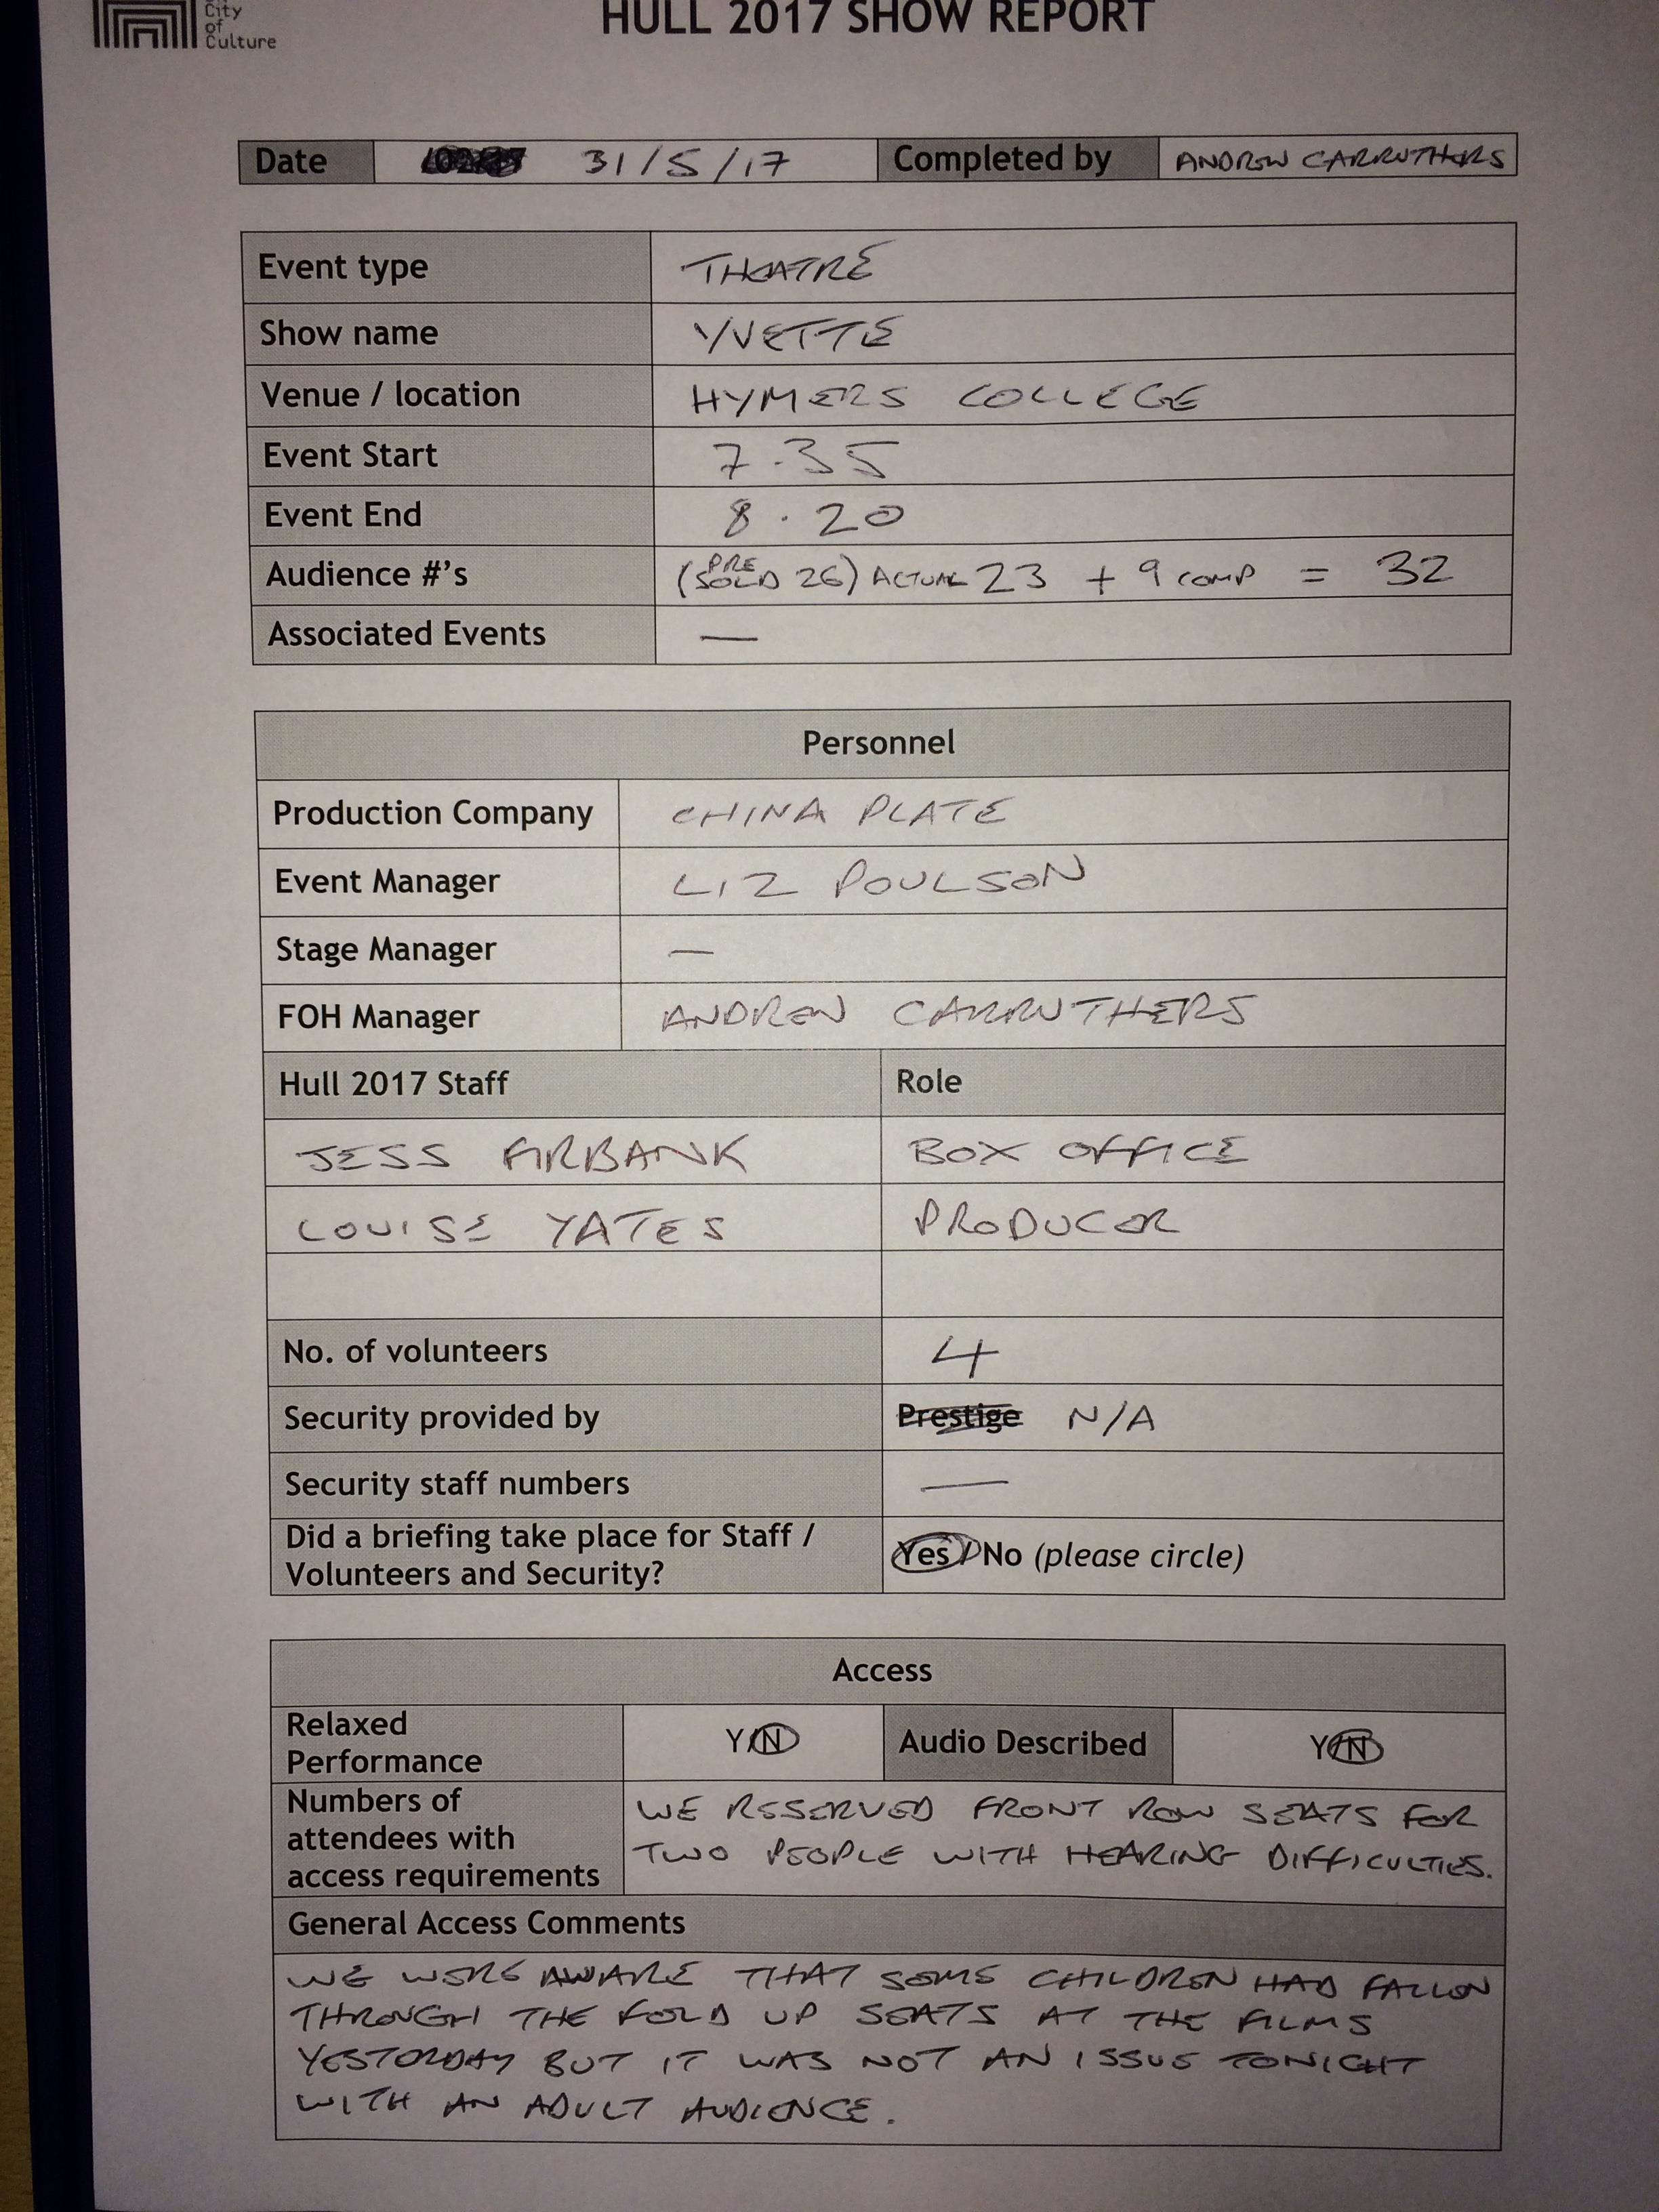 City
of
Culture
HULL 2017 SHOW REPORT
Date 31/5/17 Completed by ANDREW CARRUTHERS
Event type THEATRE
Show name YVETTE
Venue / location HYMERS COLLEGE
Event Start 7.35
Event End 8.20
Audience #'s (PRE SOLD 26) ACTUAL 23 + 9 COMP = 32
Associated Events —
Personnel
Production Company CHINA PLATE
Event Manager LIZ POULSON
Stage Manager —
FOH Manager ANDREW CARRUTHERS
Hull 2017 Staff Role
JESS FIRBANK BOX OFFICE
LOUISE YATES PRODUCER
No. of volunteers 4
Security provided by Prestige N/A
Security staff numbers —
Did a briefing take place for Staff /
Volunteers and Security?
Yes / No (please circle)
Access
Relaxed
Performance
Y/N Audio Described Y/N
Numbers of
attendees with
access requirements
WE RESERVED FRONT ROW SEATS FOR
TWO PEOPLE WITH HEARING DIFFICULTIES.
General Access Comments
WE WERE AWARE THAT SOME CHILDREN HAD FALLEN
THROUGH THE FOLD UP SEATS AT THE FILMS
YESTERDAY BUT IT WAS NOT AN ISSUE TONIGHT
WITH AN ADULT AUDIENCE.